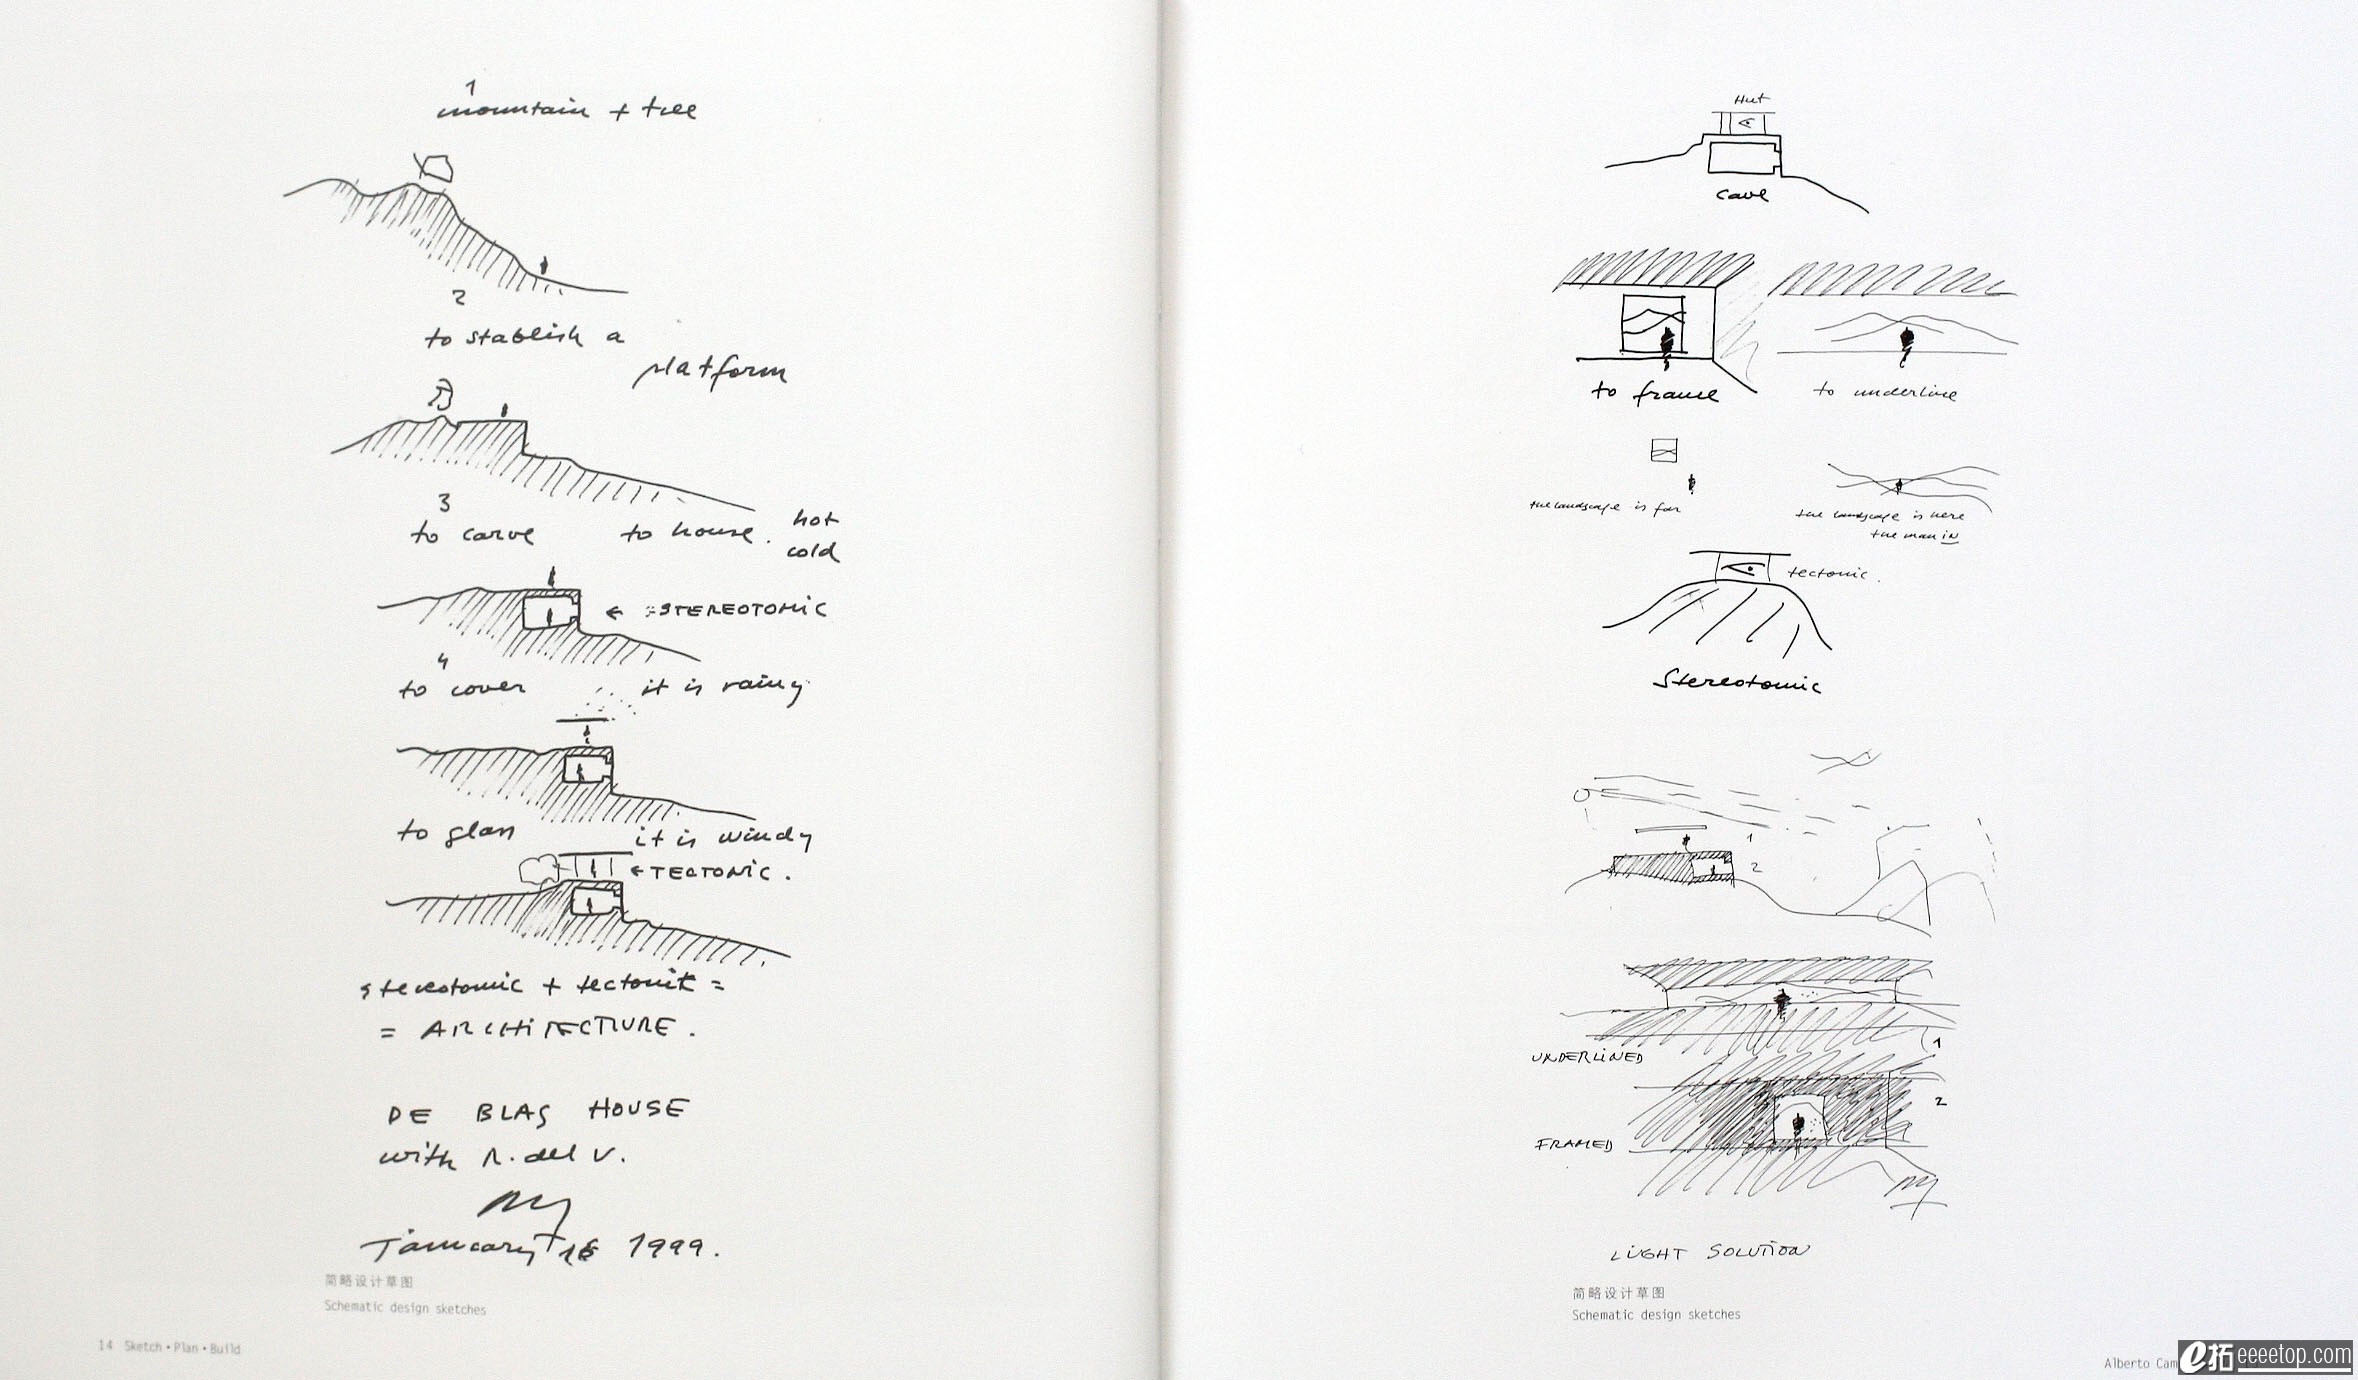 1
mountain + tree
2
to stablish a
platform
3
to carve to house. hot
cold
← STEREOTOMIC
4
to cover it is rainy
to glass it is windy
← TECTONIC.
stereotomic + tectonic =
= ARCHITECTURE.
DE BLAS HOUSE
with R. del V.
January 18 1999.
简略设计草图
Schematic design sketches
14 Sketch • Plan • Build
Hut
cave
to frame to underline
the landscape is far
the landscape is here
the man IN
tectonic.
Stereotomic
1
2
UNDERLINED
1
2
FRAMED
LIGHT SOLUTION
简略设计草图
Schematic design sketches
Alberto Cam
e拓 eeeetop.com